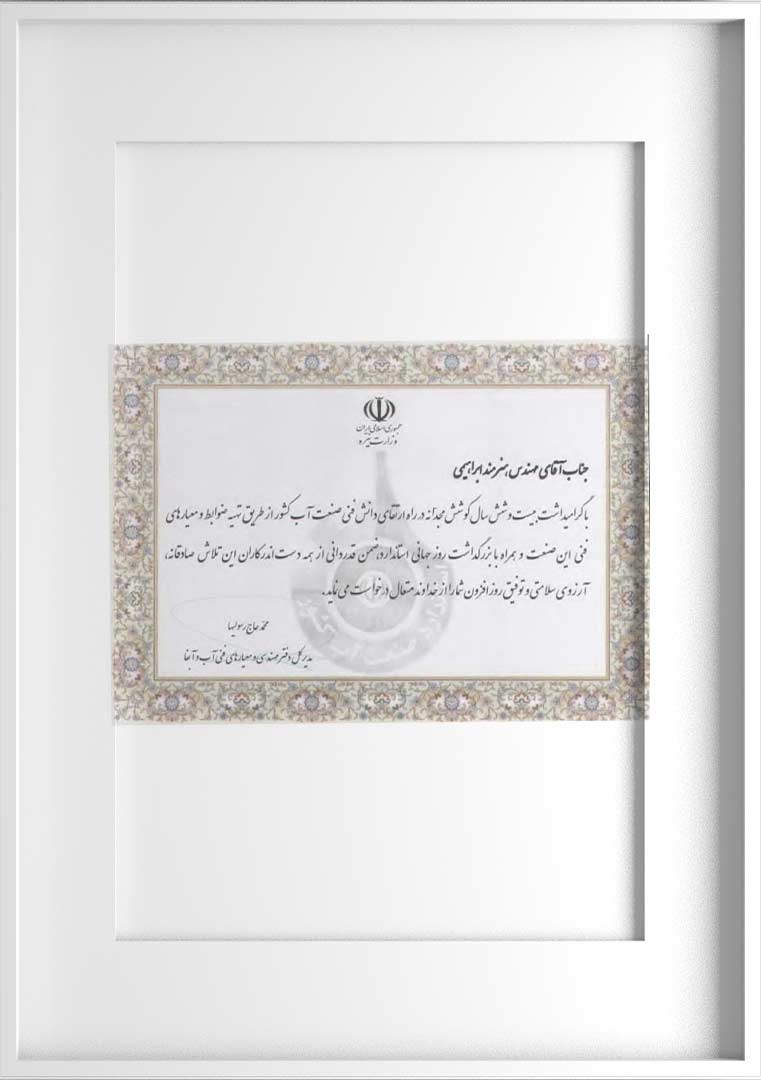 جمهوری اسلامی ایران
وزارت نیرو
جناب آقای مهندس هنرمند ابراهیمی
با گرامیداشت بیست و شش سال کوشش مجدانه در راه ارتقای دانش فنی صنعت آب کشور از طریق تهیه ضوابط و معیارهای
فنی این صنعت و همراه با بزرگداشت روز جهانی استاندارد، ضمن قدردانی از همه دست اندرکاران این تلاش صادقانه،
آرزوی سلامتی و توفیق روزافزون شما را از خداوند متعال درخواست می نماید.
محمد حاج رسولیها
مدیرکل دفتر مهندسی و معیارهای فنی آب و آبفا